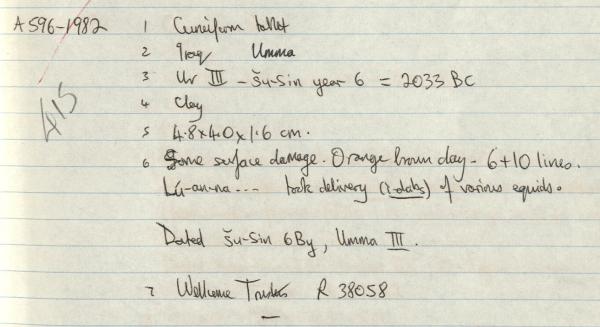 A596-1982 1 Cuneiform tablet
2 Iraq Umma
3 Ur III - Šu-Sin year 6 = 2033 BC
4 Clay
415
5 4.8x4.0x1.6 cm.
6 Some surface damage. Orange brown clay - 6+10 lines.
Lú-an-na... took delivery (ì-dab₅) of various equids.
Dated Šu-Sin 6By, Umma III.
7 Wellcome Trustees R 38058